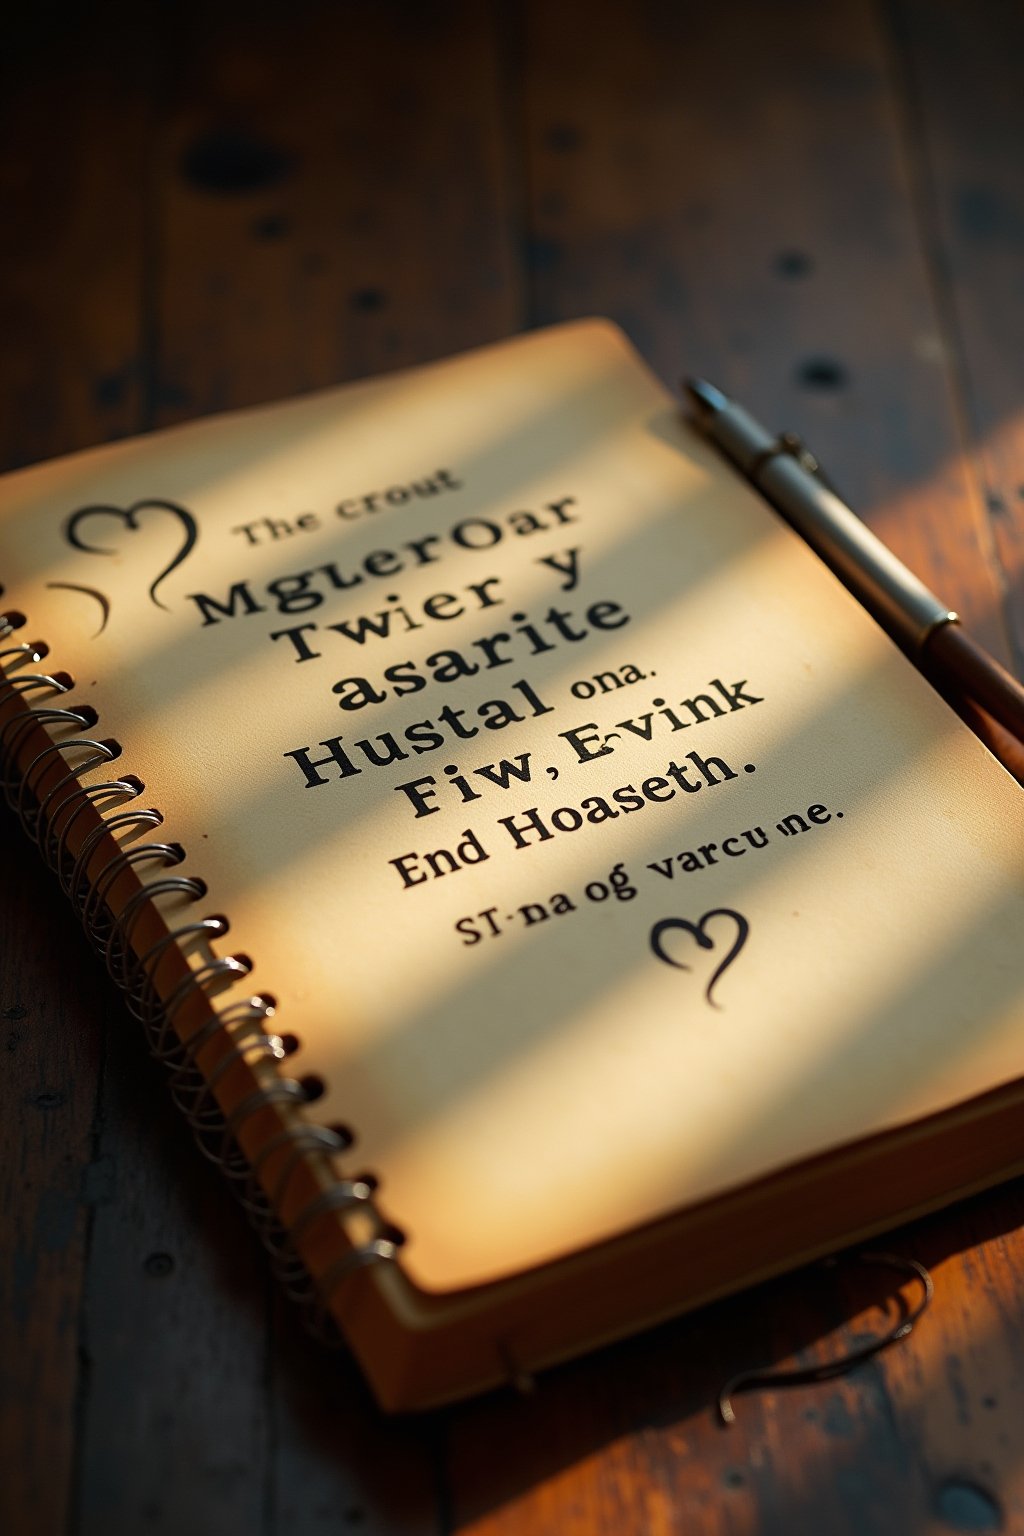 The crout
MgLerOar
Twier y
asarite
Hustal ona.
Fiw, Evink
End Hoaseth.
ST-na og varcu ne.